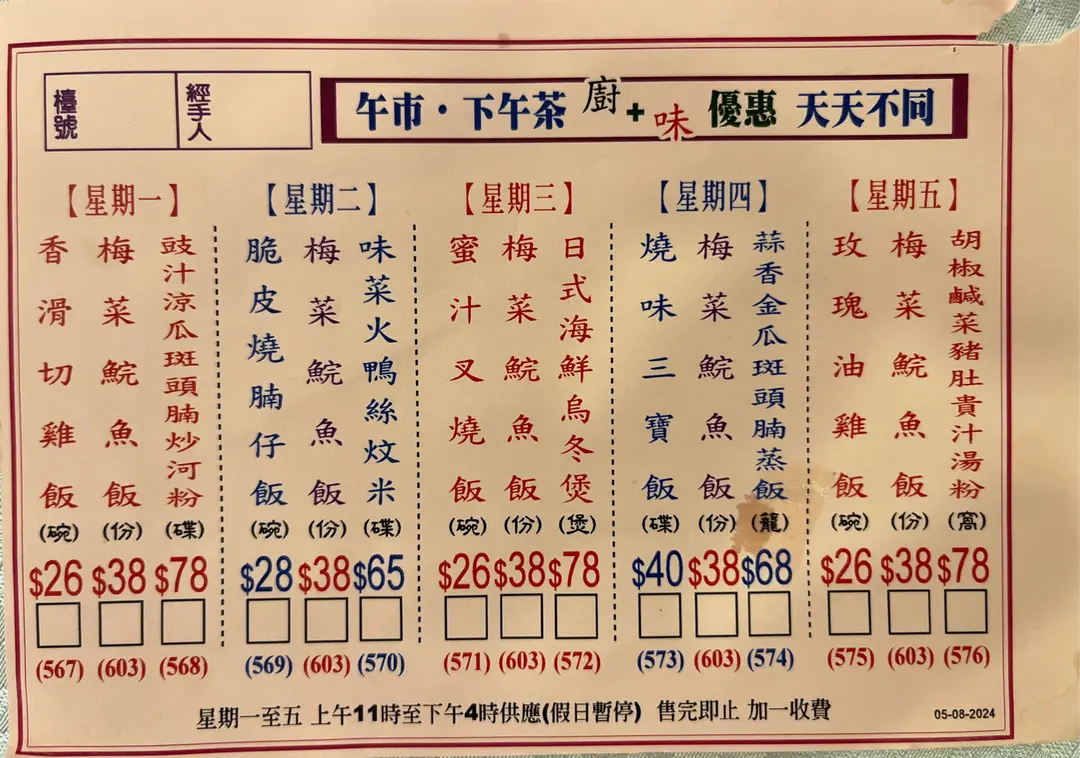 檯號
經手人
午市·下午茶 廚+味 優惠 天天不同
【星期一】
香滑切雞飯(碗) $26 (567)
梅菜鯇魚飯(份) $38 (603)
豉汁涼瓜斑頭腩炒河粉(碟) $78 (568)
【星期二】
脆皮燒腩仔飯(碗) $28 (569)
梅菜鯇魚飯(份) $38 (603)
味菜火鴨絲炆米(碟) $65 (570)
【星期三】
蜜汁叉燒飯(碗) $26 (571)
梅菜鯇魚飯(份) $38 (603)
日式海鮮烏冬煲(煲) $78 (572)
【星期四】
燒味三寶飯(碟) $40 (573)
梅菜鯇魚飯(份) $38 (603)
蒜香金瓜斑頭腩蒸飯(籠) $68 (574)
【星期五】
玫瑰油雞飯(碗) $26 (575)
梅菜鯇魚飯(份) $38 (603)
胡椒鹹菜豬肚貴汁湯粉(窩) $78 (576)
星期一至五 上午11時至下午4時供應(假日暫停) 售完即止 加一收費
05-08-2024